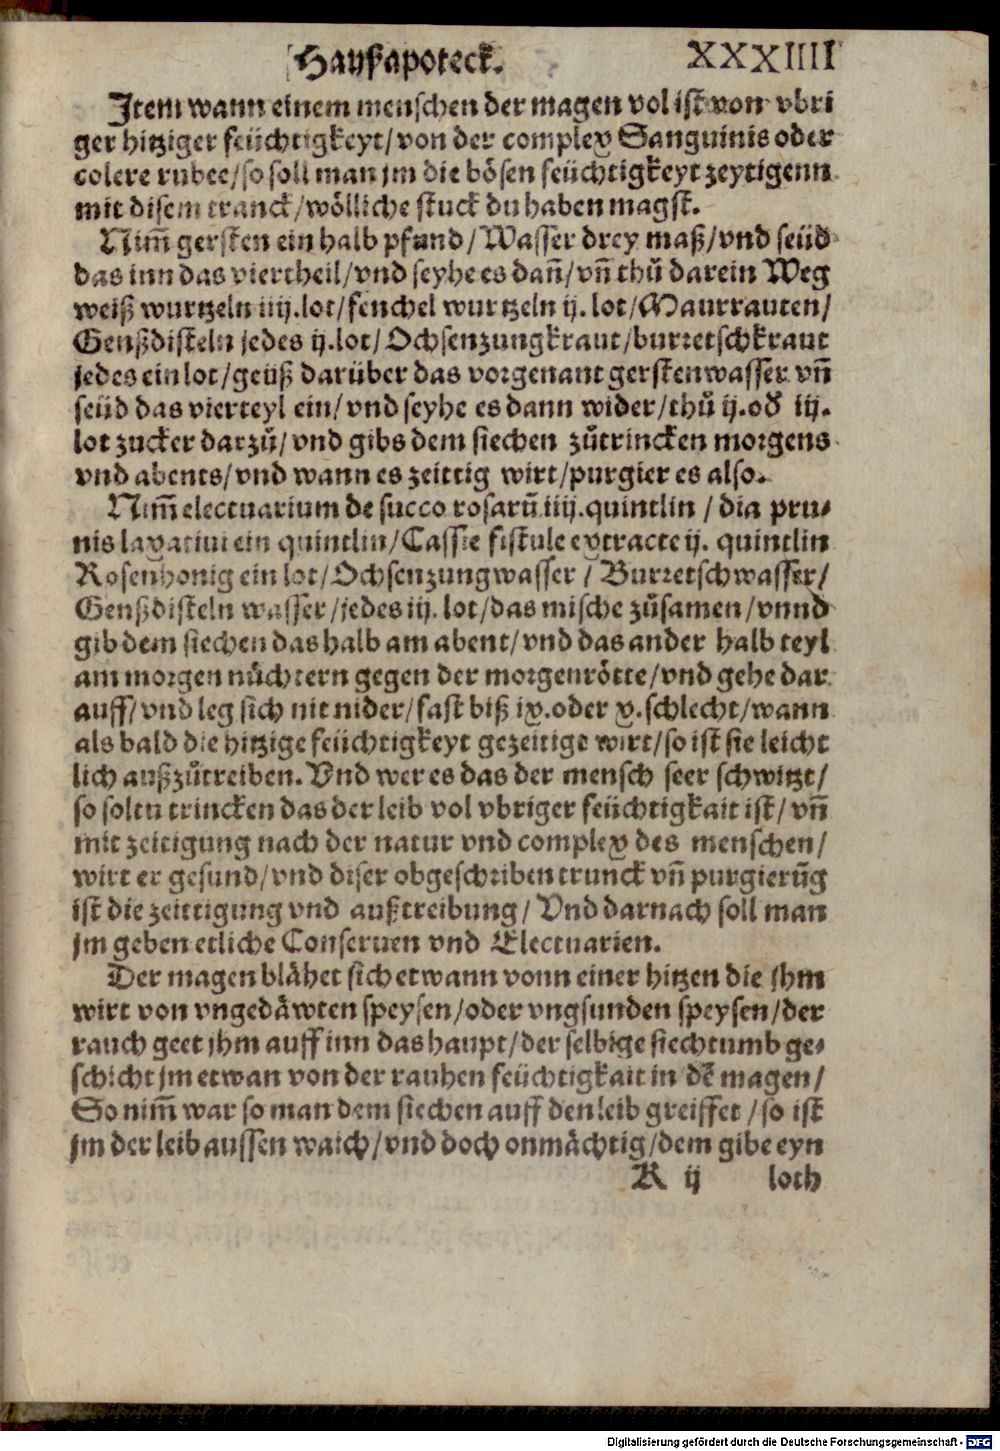 Haußapoteck. XXXIIII
Item wann einem menschen der magen vol ist von vbri
ger hitziger feüchtigkeyt/von der complex Sanguinis oder
colere rubee/so soll man jm die bösen feüchtigkeyt zeytigenn
mit disem tranck/wölliche stuck du haben magst.
Nim̄ gersten ein halb pfund/Wasser drey maß/vnd seüd
das inn das viertheil/vnd seyhe es dañ/vñ thů darein Weg
weiß wurtzeln iiij.lot/fenchel wurtzeln ij. lot/Maurrauten/
Genßdisteln jedes ij.lot/Ochsenzungkraut/burretschkraut
jedes ein lot/geüß darüber das vorgenant gerstenwasser vñ
seüd das vierteyl ein/vnd seyhe es dann wider/thů ij.oď iij.
lot zucker darzů/vnd gibs dem siechen zůtrincken morgens
vnd abents/vnd wann es zeittig wirt/purgier es also.
Nim̄ electuarium de succo rosarū iiij.quintlin/dia pru⸗
nis laxatiui ein quintlin/Cassie fistule extracte ij. quintlin
Rosenhonig ein lot/Ochsenzungwasser/Burretschwasser/
Genßdisteln wasser/jedes iij. lot/das mische zůsamen/vnnd
gib dem siechen das halb am abent/vnd das ander halb teyl
am morgen nůchtern gegen der morgenrötte/vnd gehe dar
auff/vnd leg sich nit nider/fast biß ix.oder x.schlecht/wann
als bald die hitzige feüchtigkeyt gezeitige wirt/so ist sie leicht
lich außzůtreiben. Vnd wer es das der mensch seer schwitzt/
so soltu trincken das der leib vol vbriger feüchtigkait ist/vñ
mit zeitigung nach der natur vnd complex des menschen/
wirt er gesund/vnd diser obgeschriben trunck vñ purgierūg
ist die zeittigung vnd außtreibung/Vnd darnach soll man
jm geben etliche Conseruen vnd Electuarien.
Der magen blähet sich etwann vonn einer hitzen die jhm
wirt von vngedäwten speysen/oder vngsunden speysen/der
rauch geet jhm auff inn das haupt/der selbige siechtumb ge⸗
schicht jm etwan von der rauhen feüchtigkait in dē magen/
So nim̄ war so man dem siechen auff den leib greiffet/so ist
jm der leib aussen waich/vnd doch onmächtig/dem gibe eyn
K ij loth
Digitalisierung gefördert durch die Deutsche Forschungsgemeinschaft - DFG